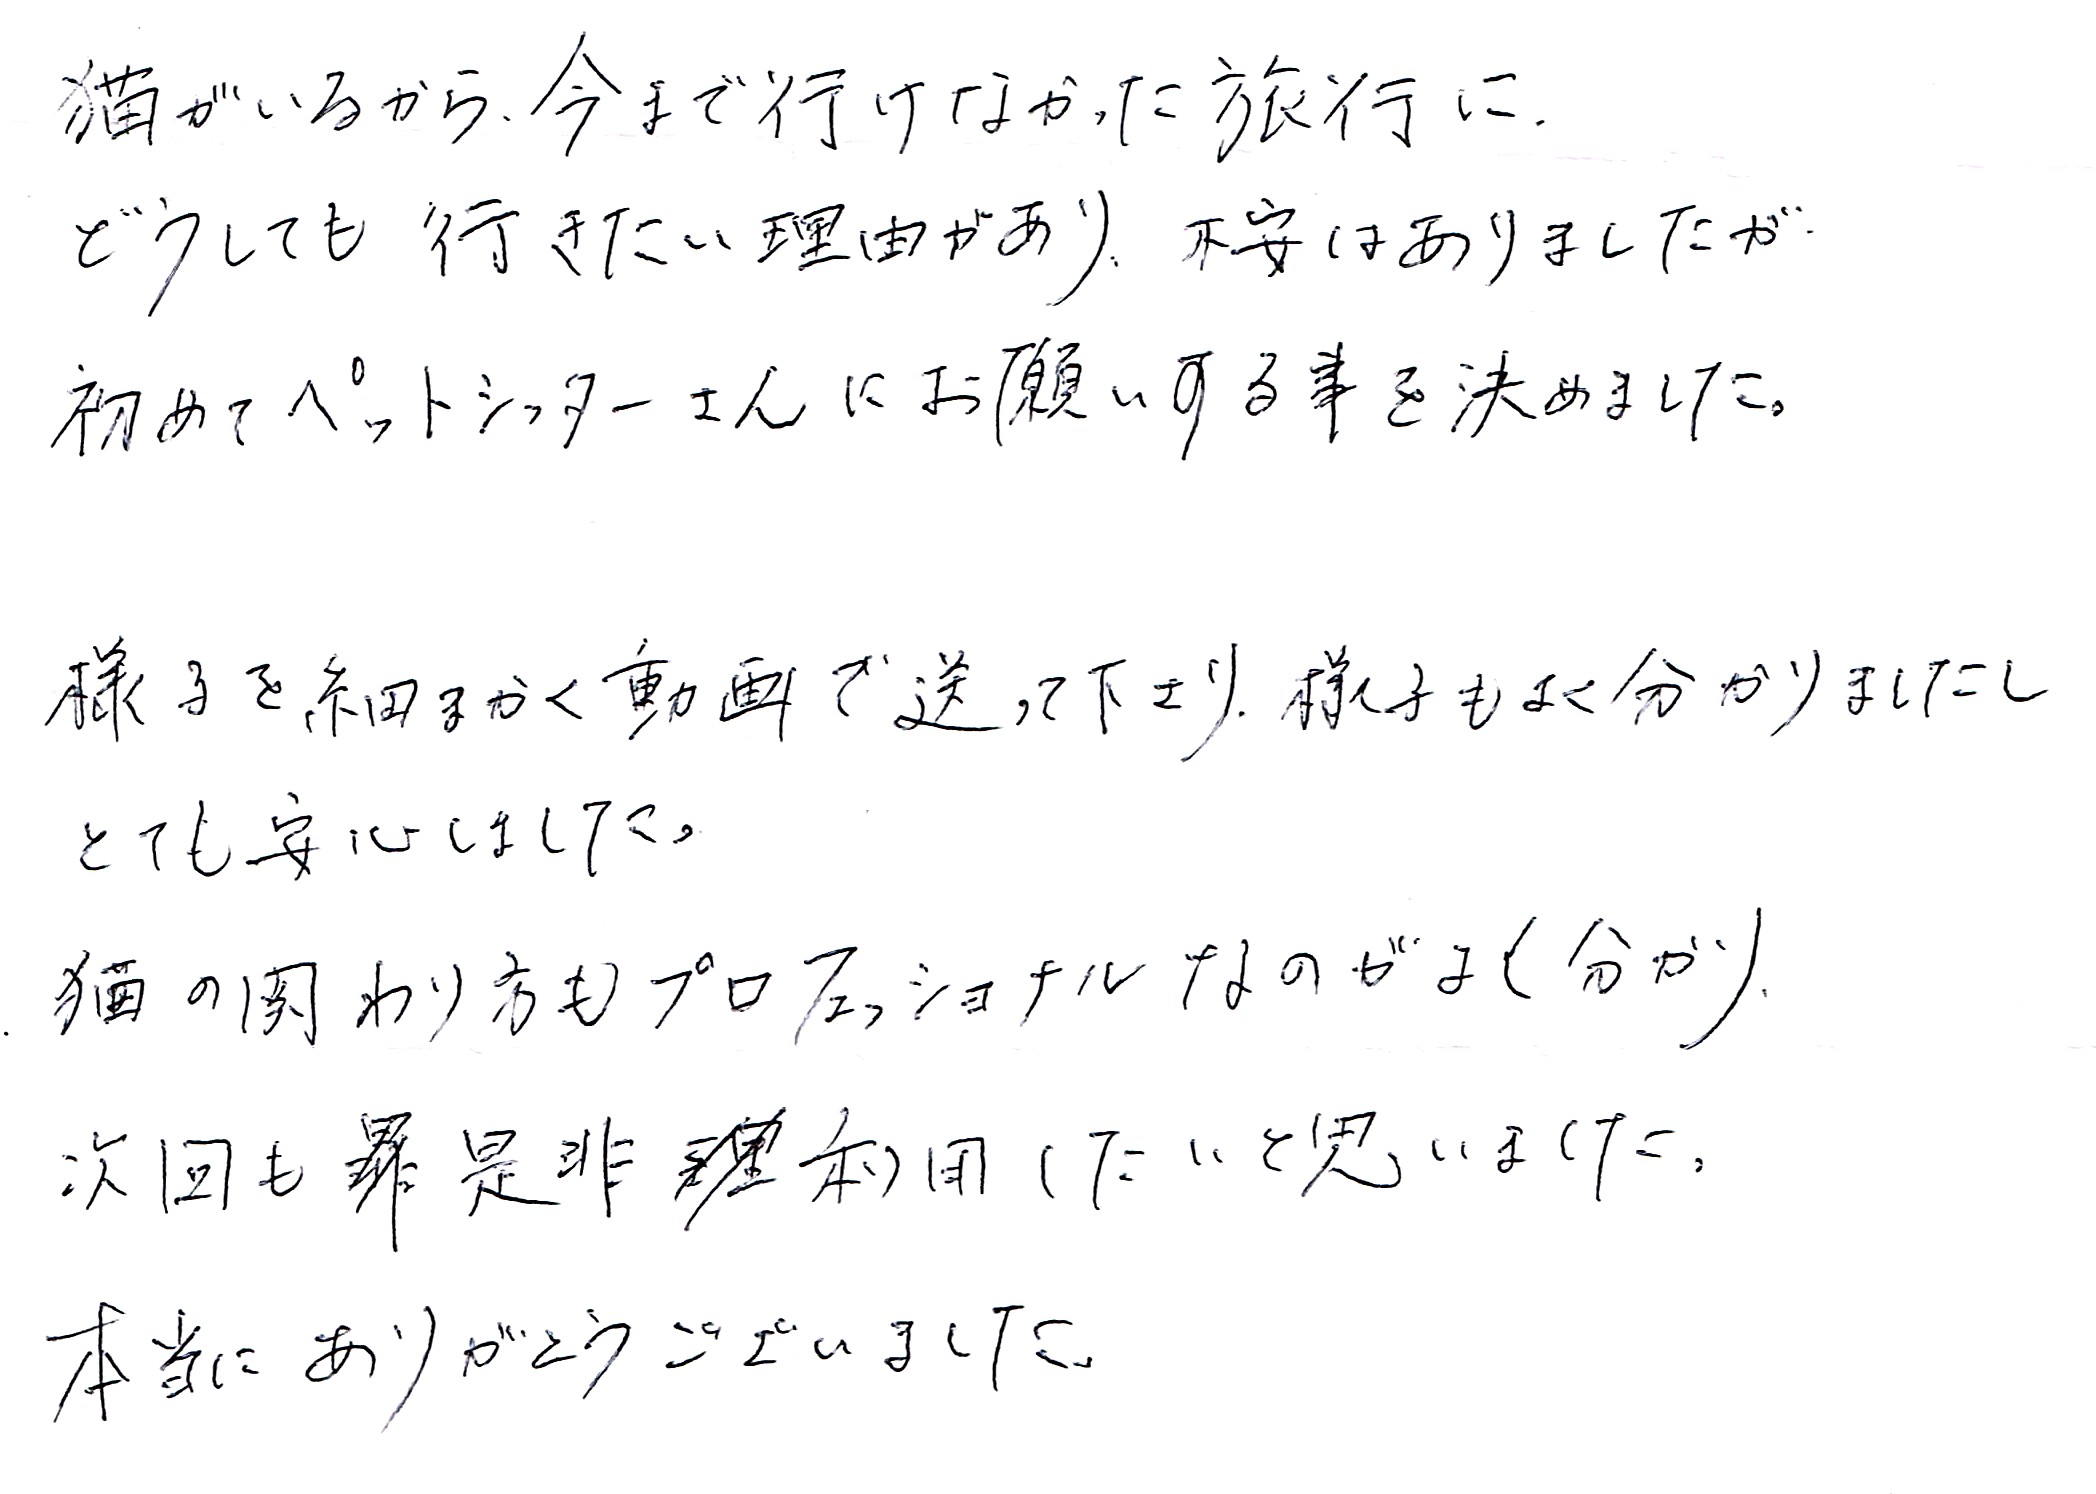 猫がいるから、今まで行けなかった旅行に、
どうしても行きたい理由があり、不安はありましたが
初めてペットシッターさんにお願いする事を決めました。
様子を細まかく動画で送って下さり、様子もよく分かりましたし
とても安心しました。
猫の関わり方もプロフェッショナルなのがよく分かり、
次回も是非利用したいと思いました。
本当にありがとうございました。